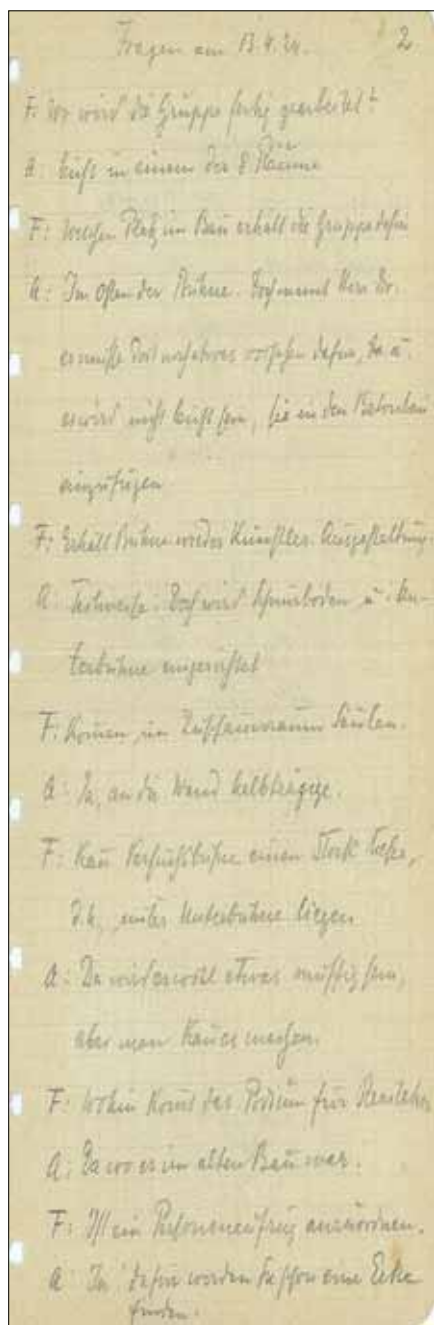 Fragen am 13.4.24. 2
F: Wo wird die Gruppe fertig gearbeitet?
A: leicht in einem der 8 Räume
F: Welchen Platz im Bau erhält die Gruppe
A: Im Osten der Bühne. Doch meint Herr Dr.
er müsse dort noch etwas vorsehen dafür, u.
es wird nicht leicht sein, sie in den Betonbau
einzufügen
F: Erhält Bühne wieder Künstler. Ausgestaltung.
A: Teilweise. Doch wird Schnürboden u. Un-
terbühne eingerichtet
F: Komen im Zuschauerraum Säulen.
A: Ja, an die Wand
F: Kan Versuchsbühne einen Stock tiefer,
d.h. unter Unterbühne liegen
A: Da wird es wohl etwas muffig sein,
aber man Kan es machen.
F: Wohin Komt das Podium für
A: Da wo es im alten Bau war.
F: Ist ein Personenaufzug anzuordnen.
A: Ja dafür werden Sie schon eine Ecke
finden.